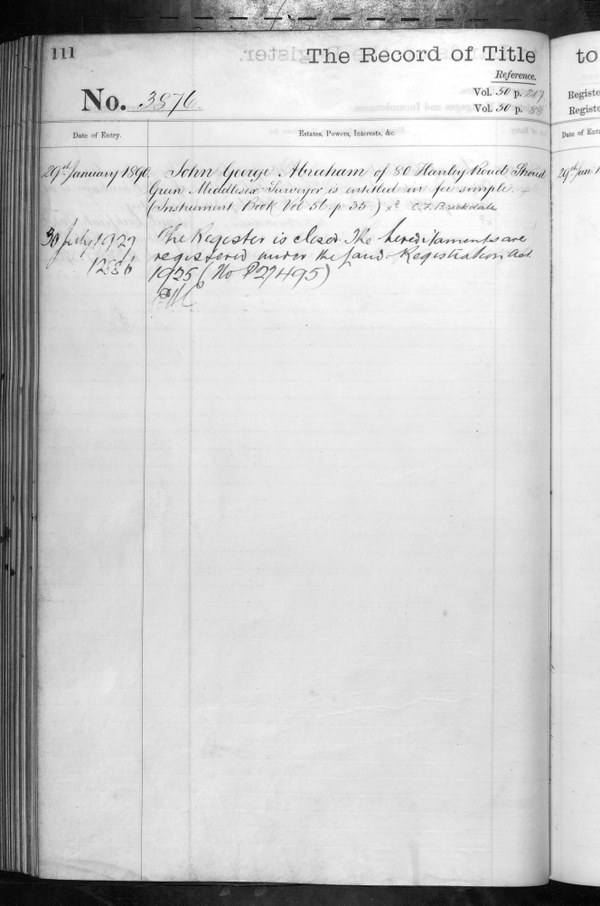 111
The Record of Title
to
Reference.
No. 3876.
Vol. 50 p. 207
Vol. 50 p. 88
Registe
Registe
Date of Entry.
Estates, Powers, Interests, &c.
Date of Ent
29th January 1890. John George Abraham of 80 Hanley Road Stroud
Green Middlesex Surveyor is entitled in fee simple.
(Instrument Book Vol 56 p 35) C.F. Brickdale
29th Jan
30 July 1927 The Register is closed. The hereditaments are
registered under the Land Registration Act
1925 (No P27495)